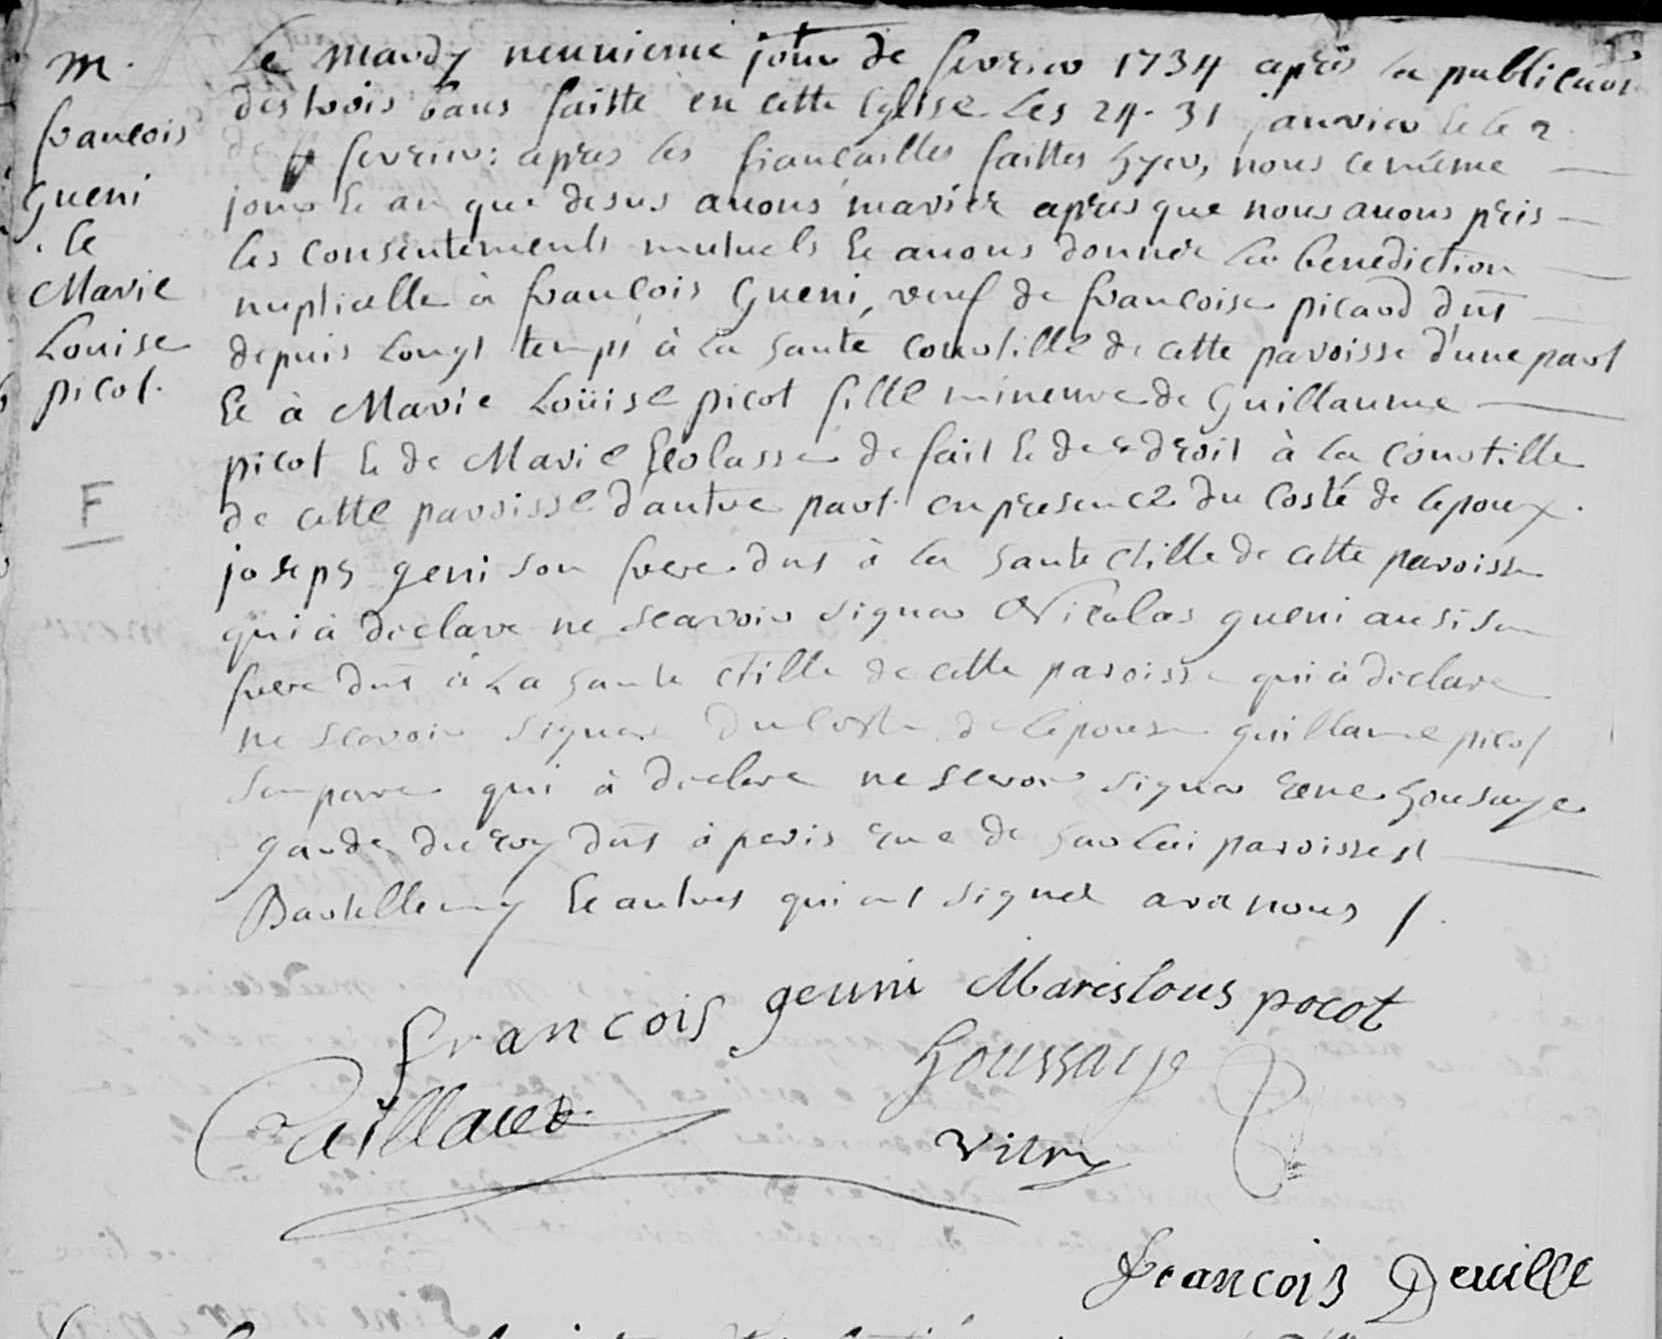 m.
francois
Gueni
. Ee
Marie
Louise
picot.
F
Le mardy neuuieme jour de fevrier 1734 apres la publication
des trois bans faitte en cette Eglise Les 24. 31 janvier Ee le 2
de fevrier: apres les fiancailles faittes hyer, nous ce même
jour Ee an que desus auons mariéz apres que nous auons pris
les consentements mutuels Ee auons donnée La benediction
nuptialle à francois Gueni, veuf de francoise picard dnt
depuis Longt temps à La haute courtille de cette paroisse d'une part
Ee à Marie Loüise picot fille mineure de Guillaume
picot Ee de Marie Ecolasse de fait Ee de droit à La courtille
de cette paroisse dautre part. en presence du Costé de lepoux.
joseph geni son frere dnt à La haute ctille de cette paroisse
qui à declare ne scavoir signer Nicolas gueni ausi son
frere dnt à La haute ctille de cette paroisse qui à declare
ne scavoir signer Du Coste de lepouse guillaume picot
son pere qui à declare ne scavoir signer Rene housaye
garde du roy dnt à paris rue de paroisse st
Bartellemy Ee autres qui ont signer avec nous /.
francois geuni Mareslous pocot
houssaye
Vitry
francois Deuille